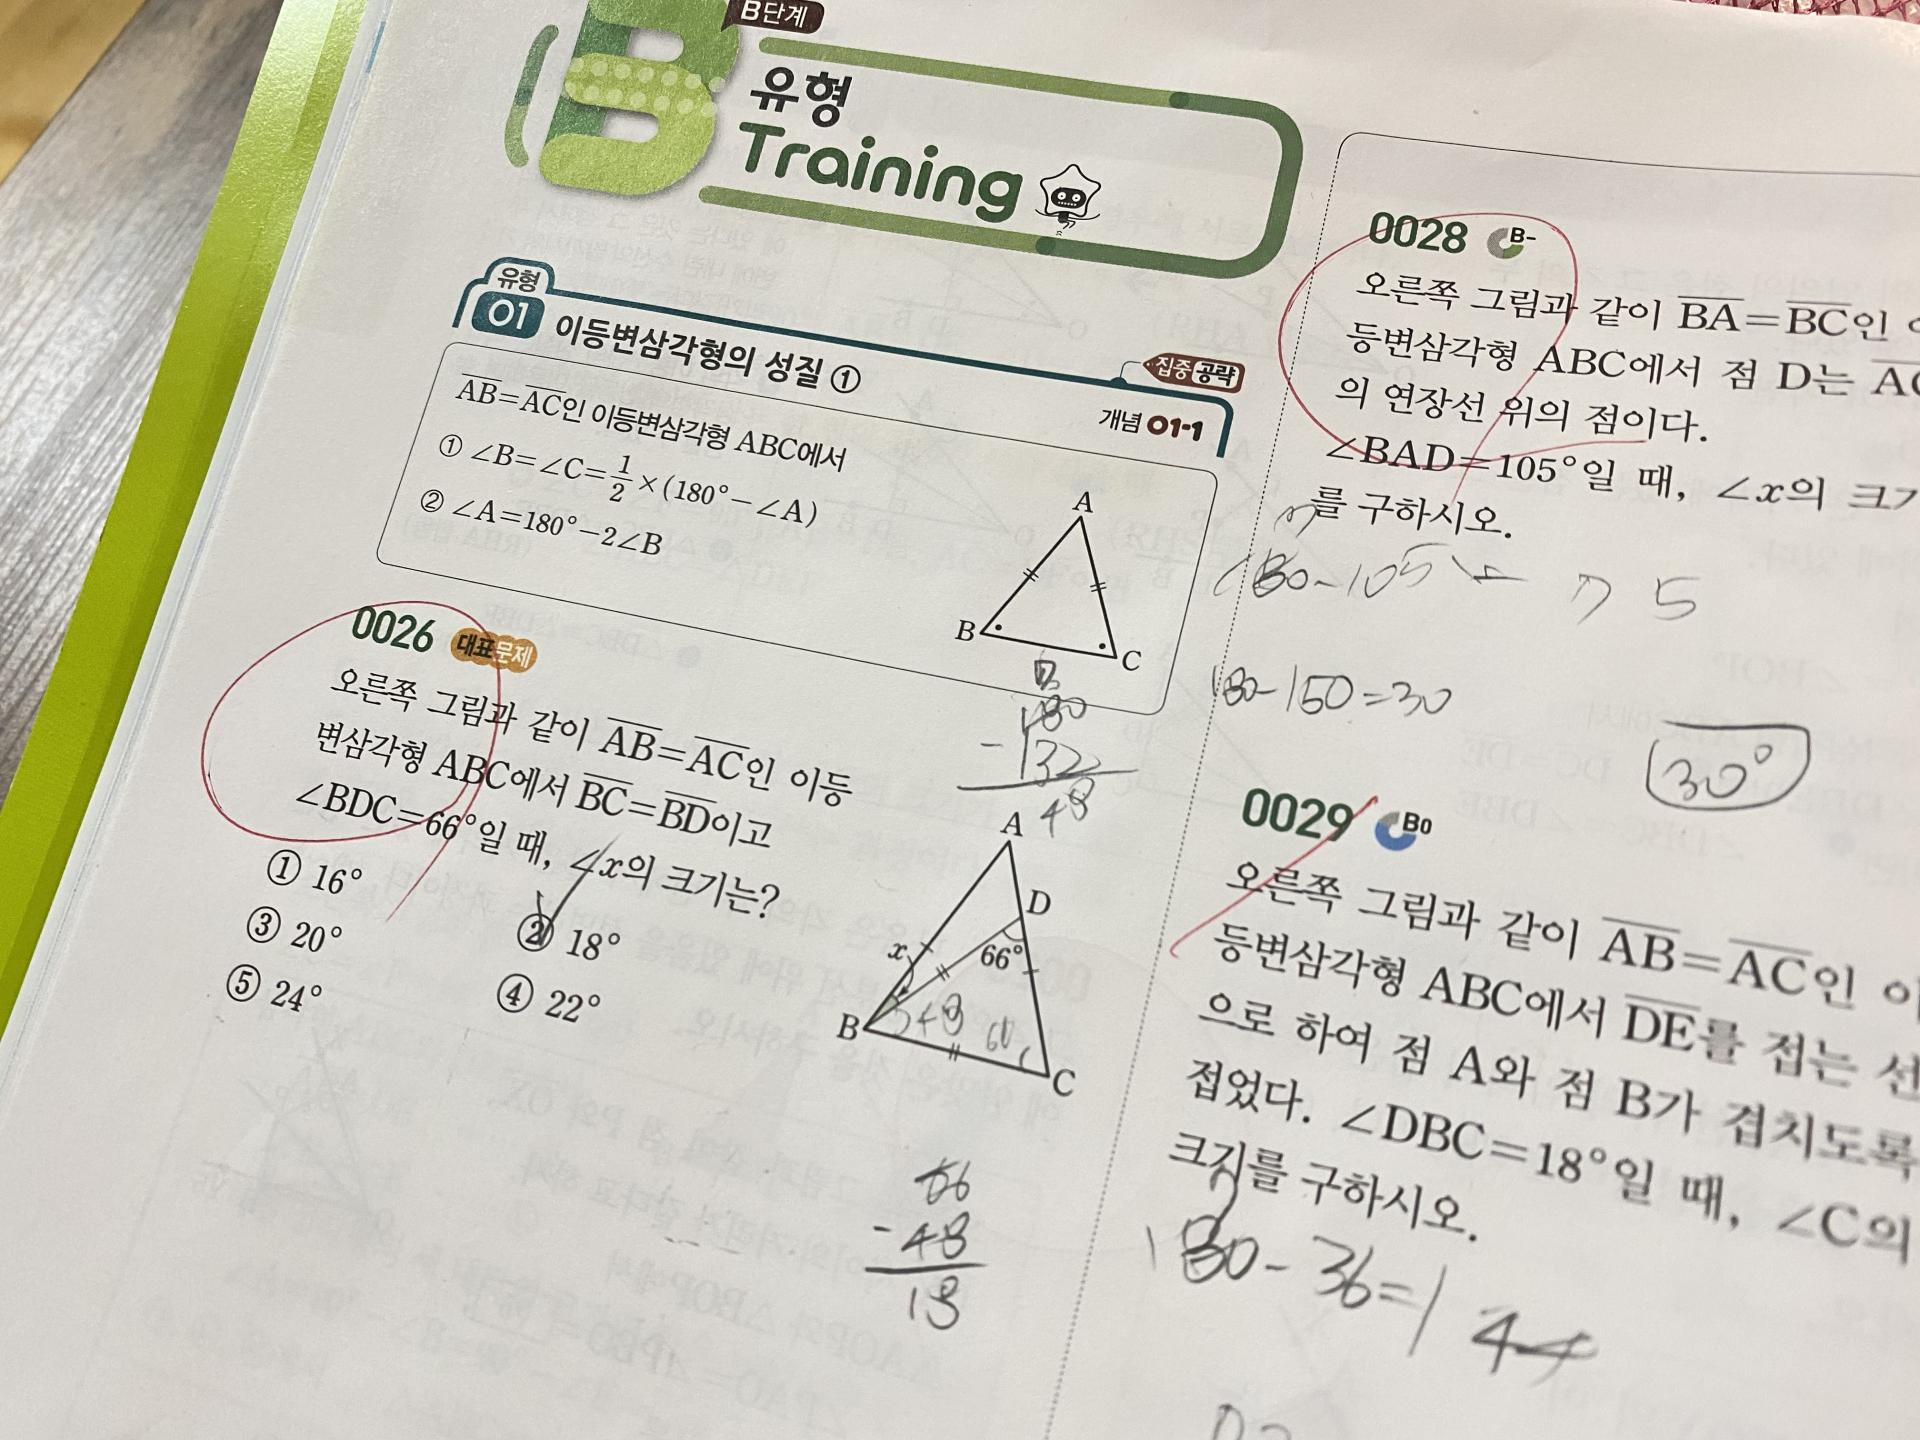 B단계
B
유형
Training
유형
01 이등변삼각형의 성질 ①
집중 공략
개념 01-1
AB=AC인 이등변삼각형 ABC에서
① ∠B=∠C=1/2×(180°-∠A)
② ∠A=180°-2∠B
A
B
C
0026 대표문제
오른쪽 그림과 같이 AB=AC인 이등
변삼각형 ABC에서 BC=BD이고
∠BDC=66°일 때, ∠x의 크기는?
① 16°
② 18°
③ 20°
④ 22°
⑤ 24°
180
-132
48
A
D
x
66°
48
B
C
66
-48
18
0028 B-
오른쪽 그림과 같이 BA=BC인
등변삼각형 ABC에서 점 D는
의 연장선 위의 점이다.
∠BAD=105°일 때, ∠x의 크기
를 구하시오.
180-105= 75
180-150=30
30°
0029 B0
오른쪽 그림과 같이 AB=AC인 이
등변삼각형 ABC에서 DE를 접는 선
으로 하여 점 A와 점 B가 겹치도록
접었다. ∠DBC=18°일 때, ∠C의
크기를 구하시오.
180-36=144